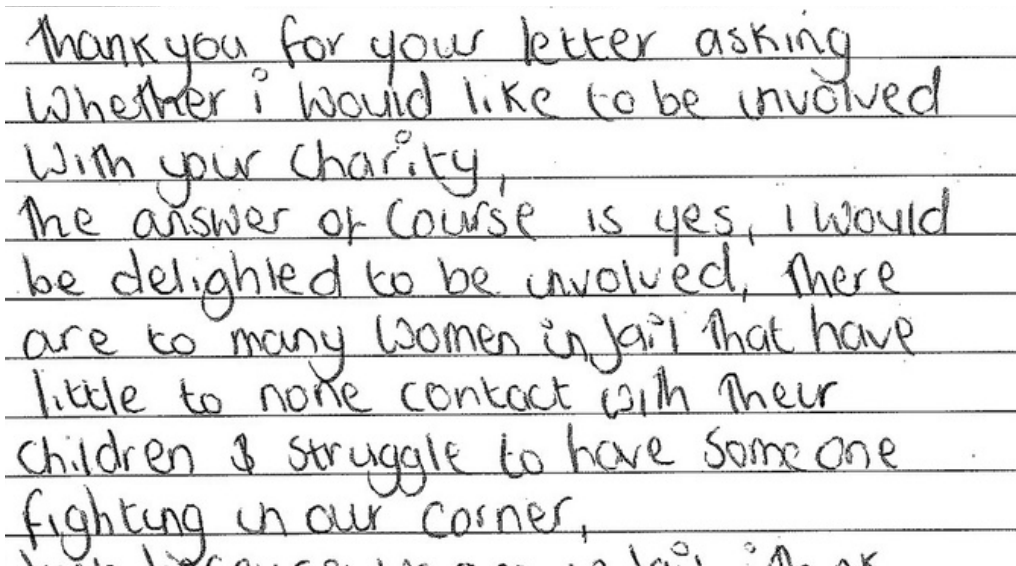 Thankyou for your letter asking
Whether i would like to be involved
With your Charity,
The answer of Course is yes, i would
be delighted to be involved, There
are to many women in Jail That have
little to none contact with Their
children & struggle to have Someone
fighting in our corner,